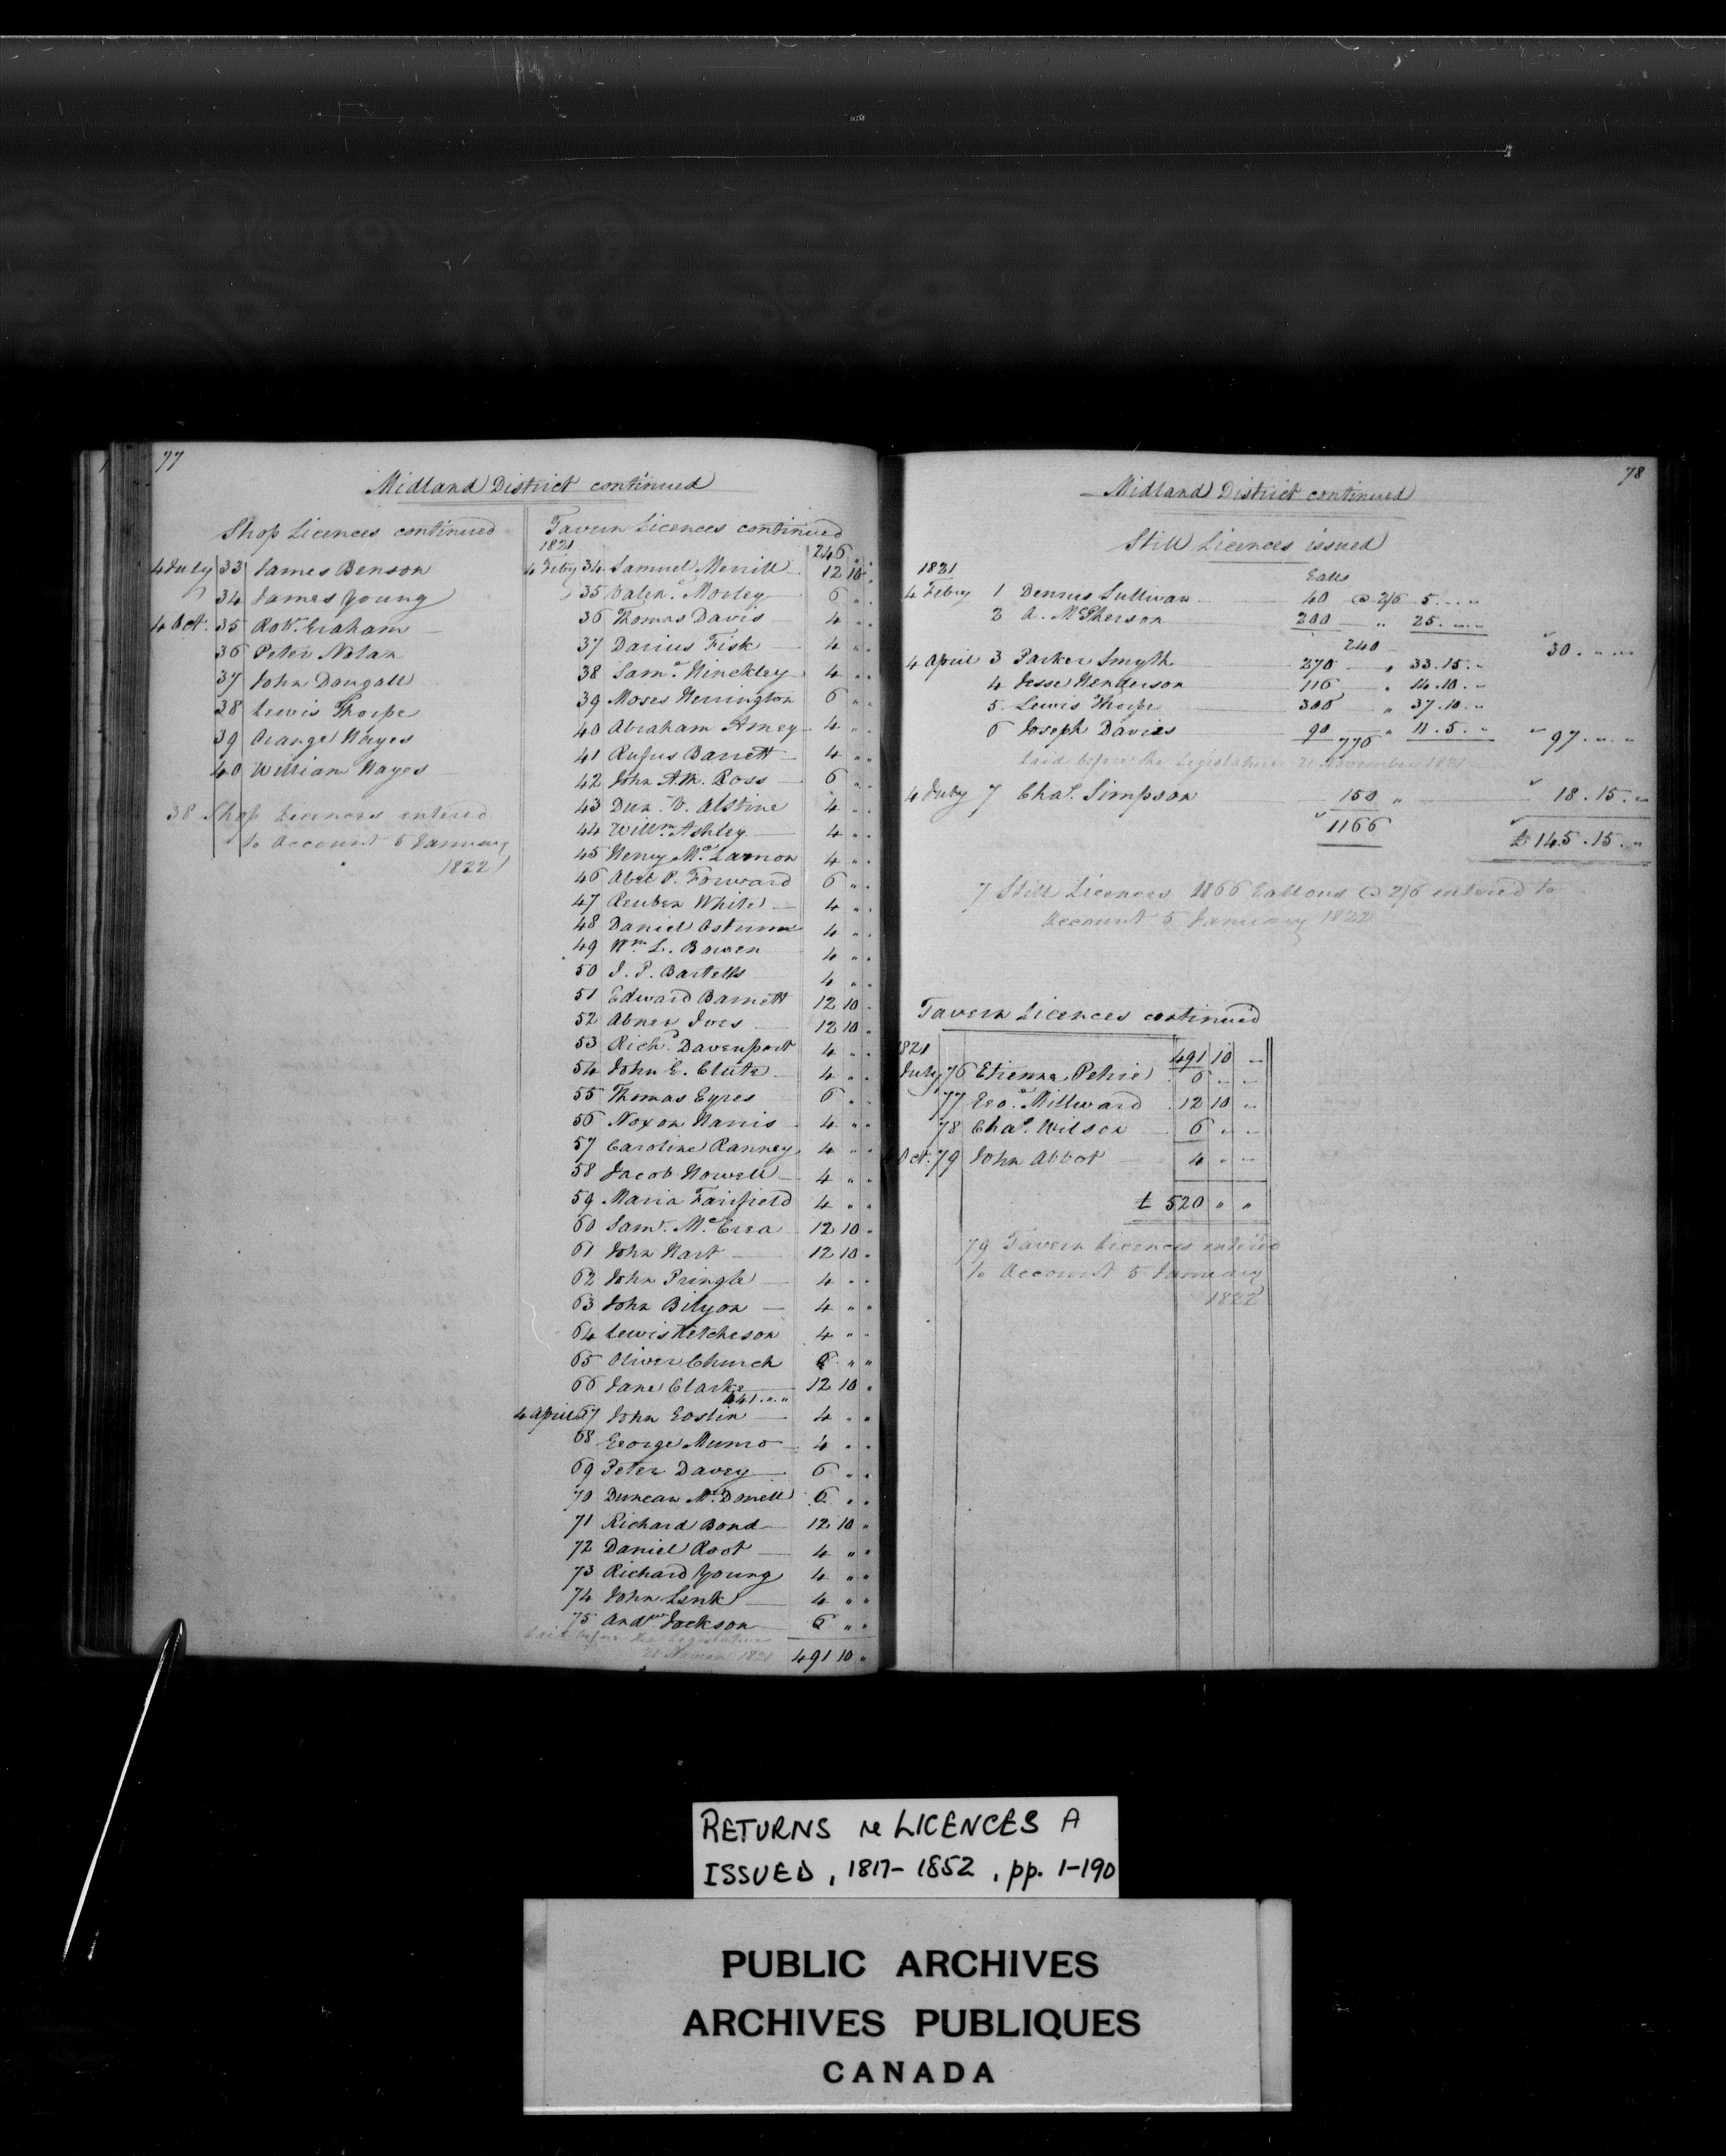 77
Midland District continued
Shop Licences continued
4 July 33 James Benson
" 34 James Young
4 Oct. 35 Robt. Graham
36 Peter Nolan
37 John Dougall
38 Lewis Thorpe
39 Orange Hayes
40 William Hayes
38 Shop Licences entered
to Account 5 January
1822
Tavern Licences continued
1821
246 " "
4 Feby 34 Samuel Merrill 12 10 "
" 35 Valen. Morley 6 " "
36 Thomas Davis 4 " "
37 Darius Fisk 4 " "
38 Saml. Hinckley 4 " "
39 Moses Herrington 6 " "
40 Abraham Amey 4 " "
41 Rufus Barrett 4 " "
42 John A.M. Ross 6 " "
43 Dun. V. Alstine 4 " "
44 Willm. Ashley 4 " "
45 Henry Mc.Larnon 4 " "
46 Abel P. Forward 6 " "
47 Reuben White 4 " "
48 Daniel Ostrum 4 " "
49 Wm. L. Bowen 4 " "
50 J. P. Bartells 4 " "
51 Edward Barnett 12 10 "
52 Abner Ives 12 10 "
53 Richd. Davenport 4 " "
54 John E. Clute 4 " "
55 Thomas Eyres 6 " "
56 Noxon Harris 4 " "
57 Caroline Ranney 4 " "
58 Jacob Howell 4 " "
59 Maria Fairfield 4 " "
60 Saml. Mc.Crea 12 10 "
61 John Hart 12 10 "
62 John Pringle 4 " "
63 John Bilyon 4 " "
64 Lewis Hetcheson 4 " "
65 Oliver Church 6 " "
66 Jane Clarke 12 10 "
441 . " . "
4 April 67 John Goslin 4 " "
68 George Munro 4 " "
69 Peter Davey 6 " "
70 Duncan Mc.Donell 6 " "
71 Richard Bond 12 10 "
72 Daniel Root 4 " "
73 Richard Young 4 " "
74 John Link 4 " "
75 Andw. Jackson 6 " "
Laid before the Legislature
21 Novem 1821 491 10 "
78
Midland District continued
Still Licences issued
1821 Galls
4 Feby 1 Dennis Sullivan 40 @ 2/6 5 . " . "
2 A. McPherson 200 " 25 . " . "
240 30 . " . "
4 April 3 Parker Smyth 270 " 33 . 15 . "
4 Jesse Henderson 116 " 14 . 10 . "
5 Lewis Thorpe 300 " 37 . 10 . "
6 Joseph Davies 90 " 11 . 5 . "
776 97 . " . "
Laid before the Legislature 21 November 1821
4 July 7 Chas. Simpson 150 " 18 . 15 . "
1166 £ 145 . 15 . "
7 Still Licences 1166 Gallons @ 2/6 entered to
Account 5 January 1822
Tavern Licences continued
1821 491 10 "
July 76 Etienne Petrie 6 " "
77 Geo. Millward 12 10 "
78 Chas. Wilson 6 " "
Oct. 79 John Abbot 4 " "
£ 520 " "
79 Tavern Licences entered
to Account 5 January
1822
RETURNS re LICENCES A
ISSUED, 1817-1852, pp. 1-190
PUBLIC ARCHIVES
ARCHIVES PUBLIQUES
CANADA